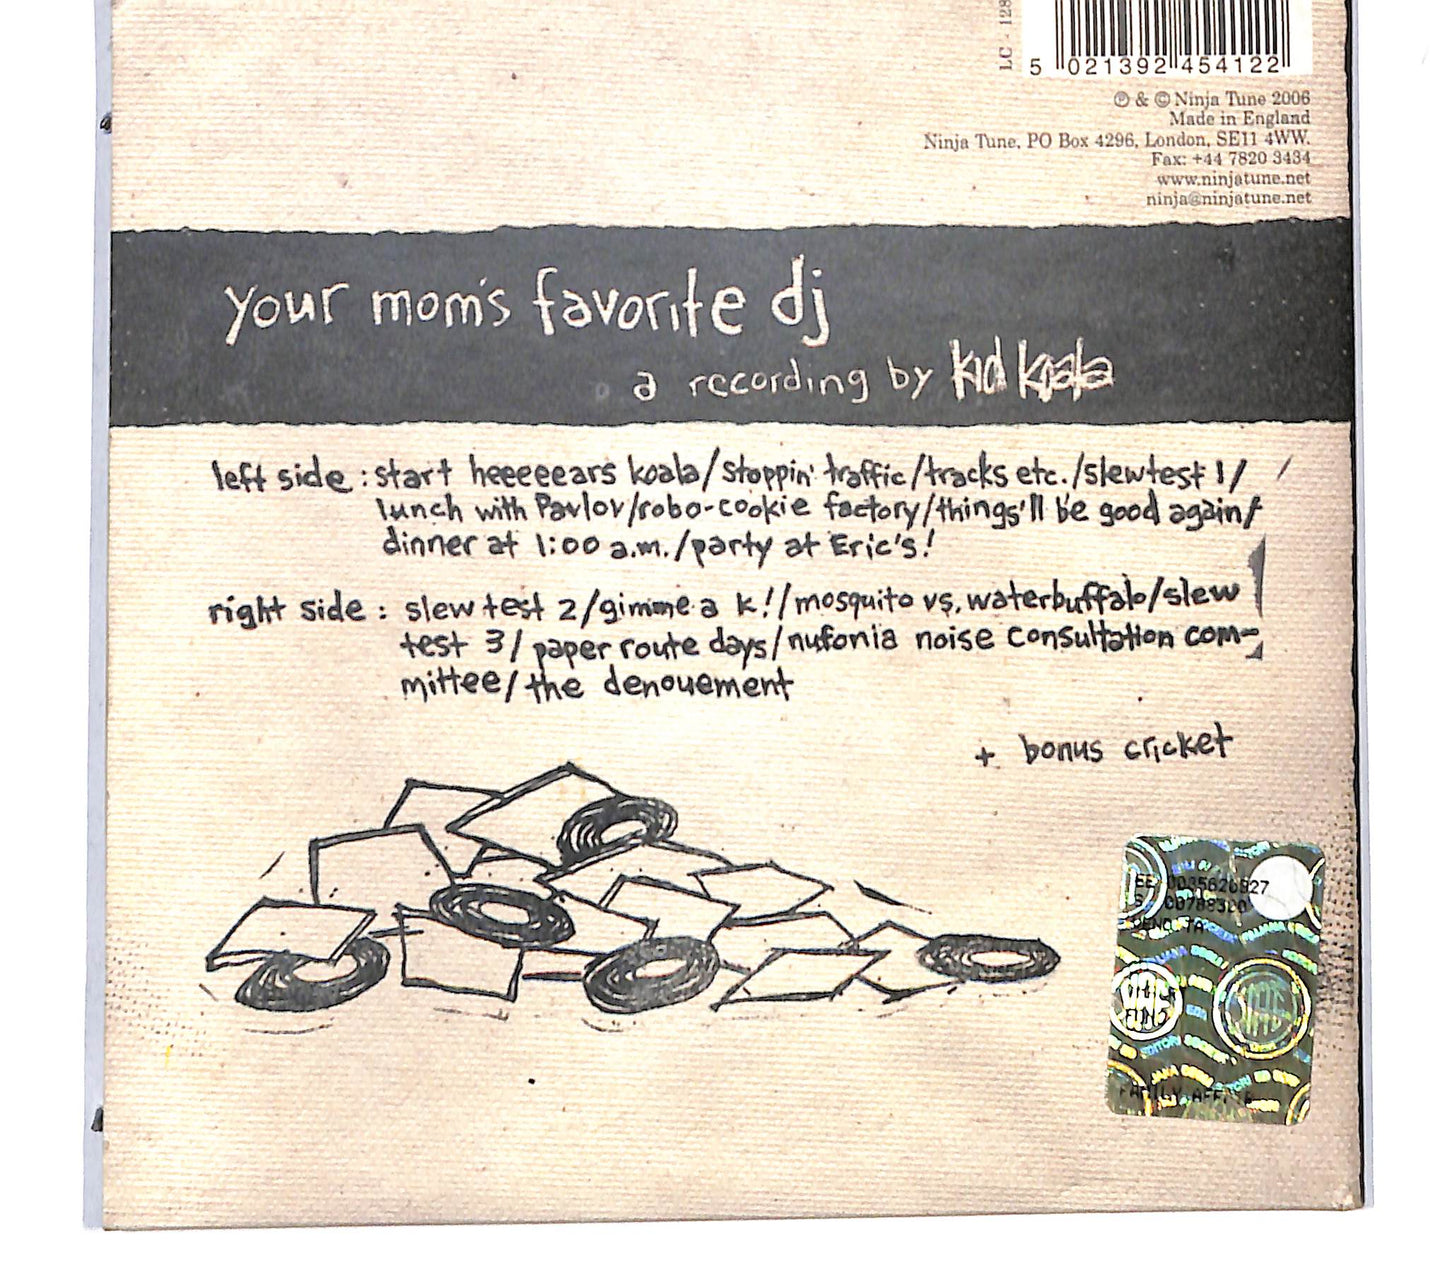 LC - 128
5 021392 454122
℗ & © Ninja Tune 2006
Made in England
Ninja Tune, PO Box 4296, London, SE11 4WW.
Fax: +44 7820 3434
www.ninjatune.net
ninja@ninjatune.net
your mom's favorite dj
a recording by kid koala
left side : start heeeeears koala/stoppin' traffic/tracks etc./slewtest 1/
lunch with Pavlov/robo-cookie factory/things'll be good again/
dinner at 1:00 a.m./party at Eric's!
right side : slew test 2/gimme a k!/mosquito vs. waterbuffalo/slew
test 3/paper route days/nufonia noise consultation com-
mittee/the denouement
+ bonus cricket